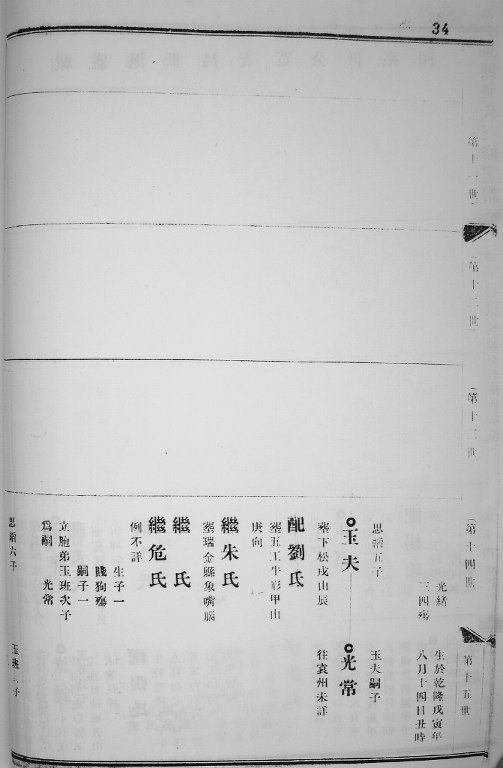 34
第十一世
第十二世
第十三世
第十四世
第十五世
光緒
三四殤
生於乾隆戊寅年
八月十四日丑時
思 五子
玉夫嗣子
玉夫
光常
塟下松戌山辰
往袁州未詳
配劉氏
塟五工牛形甲山
庚向
繼朱氏
塟瑞金縣象嘴腦
繼 氏
繼危氏
例不詳
生子一
賤狗殤
嗣子一
立胞弟玉班次子
光常
為嗣
思 六子
玉班 子